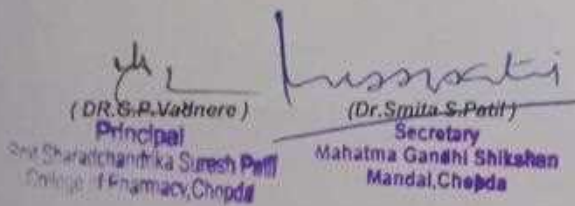 (DR.G.P.Vadnere)
Principal
Smt Sharadchandrika Suresh Patil
College of Pharmacy,Chopda
(Dr.Smita S.Patil)
Secretary
Mahatma Gandhi Shikshan
Mandal,Chopda